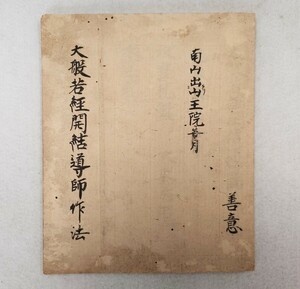 南山出王院
善意
大般若経開結導師作法